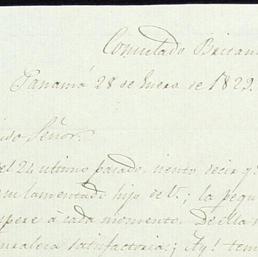 Consulado Britan
Panamá 28 de Enero de 1829.
Señor.
el 24 ultimo pasado, siento decir q
lamentado hijo de V.; la pequ
espere á cada momento. De ella
satisfactoria; ¡Ay! tem